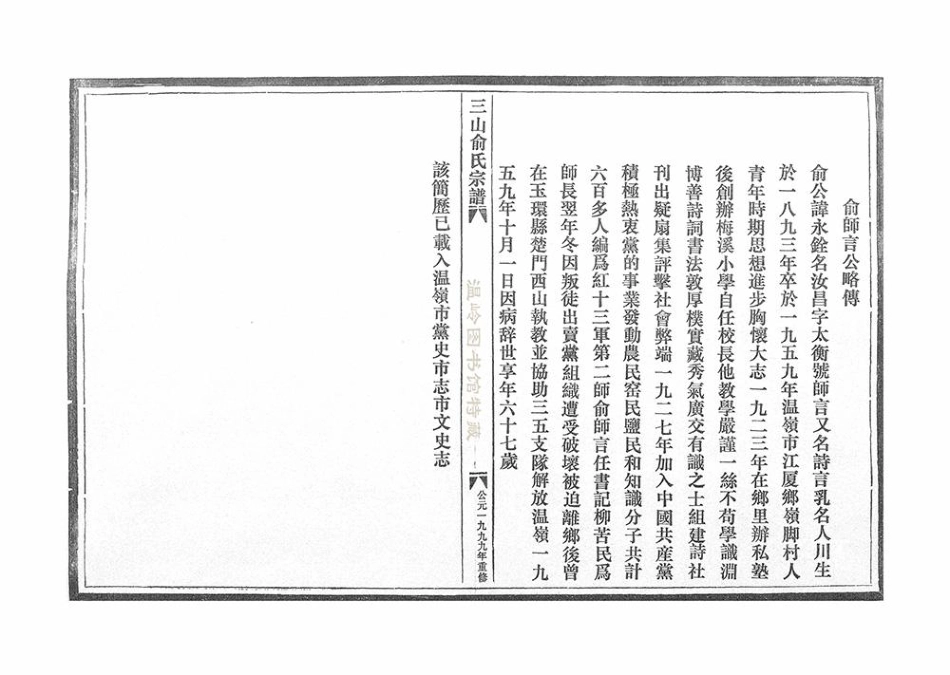 俞師言公略傳
俞公諱永銓名汝昌字太衡號師言又名詩言乳名人川生
於一八九三年卒於一九五九年温嶺市江厦鄉嶺脚村人
青年時期思想進步胸懷大志一九二三年在鄉里辦私塾
後創辦梅溪小學自任校長他教學嚴謹一絲不苟學識淵
博善詩詞書法敦厚樸實藏秀氣廣交有識之士組建詩社
刊出疑扇集評擊社會弊端一九二七年加入中國共産黨
積極熱衷黨的事業發動農民窑民鹽民和知識分子共計
六百多人編爲紅十三軍第二師俞師言任書記柳苦民爲
師長翌年冬因叛徒出賣黨組織遭受破壞被迫離鄉後曾
在玉環縣楚門西山執教並協助三五支隊解放温嶺一九
五九年十月一日因病辞世享年六十七歲
三山俞氏宗譜
温岭图书馆特藏
公元一九九九年重修
該簡歷已載入温嶺市黨史市志市文史志